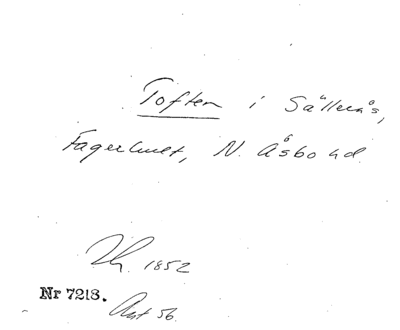 Toften i Sällerås,
Fagerhult, N. Åsbo hd.
1852
Nr 7218.
56.